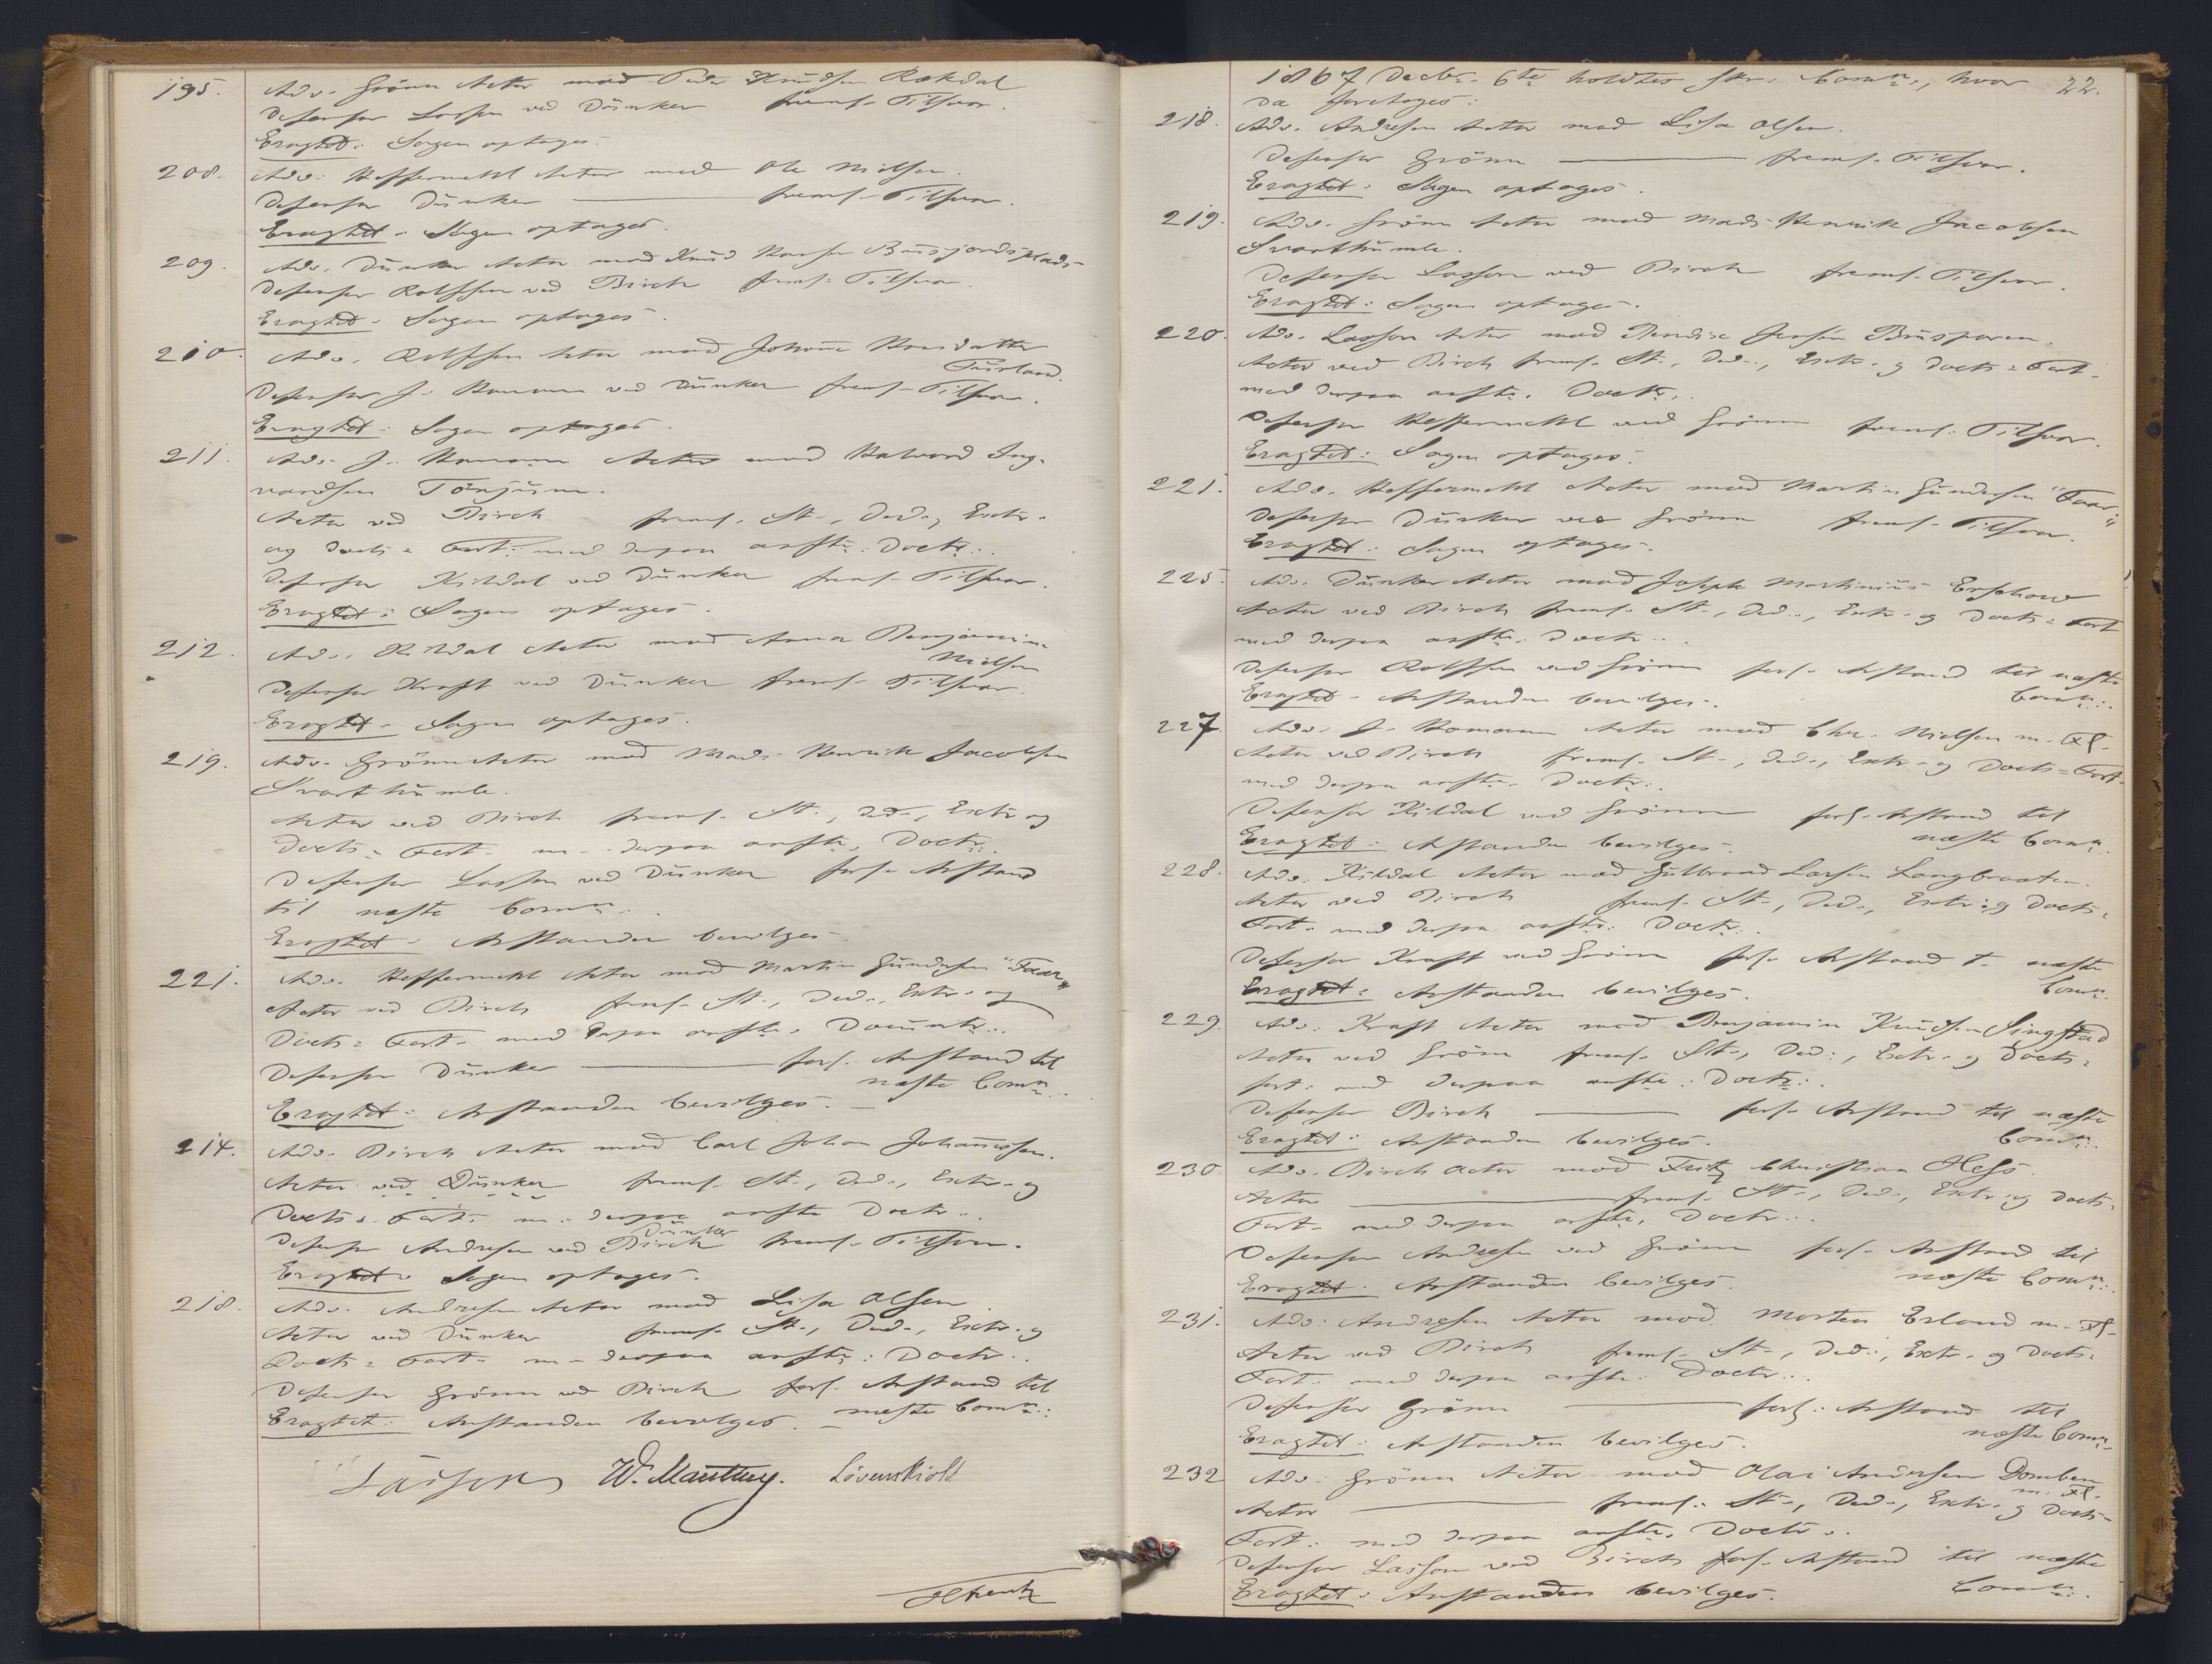 195. Adv. Grönn Actor mod Peder Knudsen Rækdal
Defensor Lasson ved Dünker frems. Tilsvar.
Eragtet: Sagen optages.
208. Adv. Heffermehl Actor mod Ole Nielsen.
Defensor Dünker — frems. Tilsvar.
Eragtet: Sagen optages.
209. Adv. Dünker Actor mod Knud Hansen
Defensor Rolffsen ved Birch frems. Tilsvar.
Eragtet: Sagen optages.
210. Adv. Rolffsen Actor mod Johanne Hansdatter
Defensor J. Homann ved Dünker frems. Tilsvar.
Eragtet: Sagen optages.
211. Adv. J. Homann Actor mod Halvord Ing-
vardsen Tönjum.
Actor ved Birch frems. St., Ded., Extr.
og Docts= Fort. med derpaa anfte. Doctr.
Defensor Kildal ved Dünker frems. Tilsvar.
Eragtet: Sagen optages.
212. Adv. Kildal Actor mod Anna Benjamin.
Nielsen
Defensor Kraft ved Dünker frems. Tilsvar.
Eragtet: Sagen optages.
219. Adv. Grönn Actor mod Mads Henrik Jacobsen
Svarthumle.
Actor ved Birch frems. St., Ded., Extr. og
Docts= Fort. m. derpaa anfte. Doctr.
Defensor Lasson ved Dünker forl. Anstand
til næste Comn.
Eragtet: Anstanden bevilges.
221. Adv. Heffermehl Actor mod Martin Gundersen "Faar"
Actor ved Birch frems. St., Ded., Extr. og
Docts= Fort. med derpaa anfte. Doctr.
Defensor Dünker — forl. Anstand til
næste Comn.
Eragtet: Anstanden bevilges.
214. Adv. Birch Actor mod Carl Johan Johannessen.
Actor ved Dünker frems. St., Ded., Extr. og
Docts= Fort. m. derpaa anfte Doctr.
Dünker
Defensor Andresen ved Birch frems. Tilsvar.
Eragtet: Sagen optages.
218. Adv. Andresen Actor mod Lisa Olsen
Actor ved Dünker frems. St., Ded., Extr. og
Docts= Fort. m. derpaa anfte: Doctr.
Defensor Grönn ved Birch forl. Anstand til
Eragtet: Anstanden bevilges. næste Comn.
Lasson W. Manthey. Løvenskiold
1867 Decbr. 6te holdtes skr. Comn., hvor 22.
da foretoges:
218. Adv. Andresen Actor mod Lisa Olsen.
Defensor Grönn — frems. Tilsvar.
Eragtet: Sagen optages.
219. Adv. Grönn Actor mod Mads Henrik Jacobsen
Svarthumle.
Defensor Lasson ved Birch frems. Tilsvar.
Eragtet: Sagen optages.
220. Adv. Lasson Actor mod Jensen
Actor ved Birch frems. St., Ded., Extr. og Docts= Fort.
med derpaa anfte. Doctr.
Defensor Heffermehl ved Grönn frems. Tilsvar.
Eragtet: Sagen optages.
221. Adv. Heffermehl Actor mod Martin Gundersen "Faar"
Defensor Dünker ved Grönn frems. Tilsvar.
Eragtet: Sagen optages.
225. Adv. Dünker Actor mod Joseph Martinius
Actor ved Birch frems. St., Ded., Extr. og Docts= Fort
med derpaa anfte: Doctr.
Defensor Rolffsen ved Grönn forl. Anstand til næste
Comn.
Eragtet: Anstanden bevilges.
227. Adv. J. Homann Actor mod Chr. Nielsen m. Fl.
Actor ved Birch frems. St., Ded., Extr. og Docts= Fort.
med derpaa anfte. Doctr.
Defensor Kildal ved Grönn forl. Anstand til
næste Comn.
Eragtet: Anstanden bevilges.
228. Adv. Kildal Actor mod Gulbrand Larsen Langbraaten.
Actor ved Birch frems. St., Ded., Extr. og Docts=
Fort. med derpaa anfte: Doctr.
Defensor Kraft ved Grönn forl. Anstand t. næste
Comn.
Eragtet: Anstanden bevilges.
229. Adv. Kraft Actor mod Benjamin Knudsen Singstad
Actor ved Grönn frems. St., Ded., Extr. og Docts=
fort. med derpaa anfte: Doctr.
Defensor Birch — forl. Anstand til næste
Comn.
Eragtet: Anstanden bevilges.
230. Adv. Birch Actor mod Fritz Christian Hess.
Actor — frems. St., Ded., Extr. og Docts=
Fort. med derpaa anfte. Doctr.
Defensor Andresen ved Grönn forl. Anstand til
næste Comn.
Eragtet: Anstanden bevilges.
231. Adv. Andresen Actor mod Morten Erland m. Fl.
Actor ved Birch frems. St., Ded., Extr. og Docts=
Fort. med derpaa anfte. Doctr.
Defensor Grönn — forl. Anstand til
næste Comn.
Eragtet: Anstanden bevilges.
232 Adv. Grönn Actor mod Olai Andersen Domben
m. Fl.
Actor — frems. St., Ded., Extr. og Docts=
Fort. med derpaa anfte. Doctr.
Defensor Lasson ved Birch forl. Anstand til næste
Comn.
Eragtet: Anstanden bevilges.